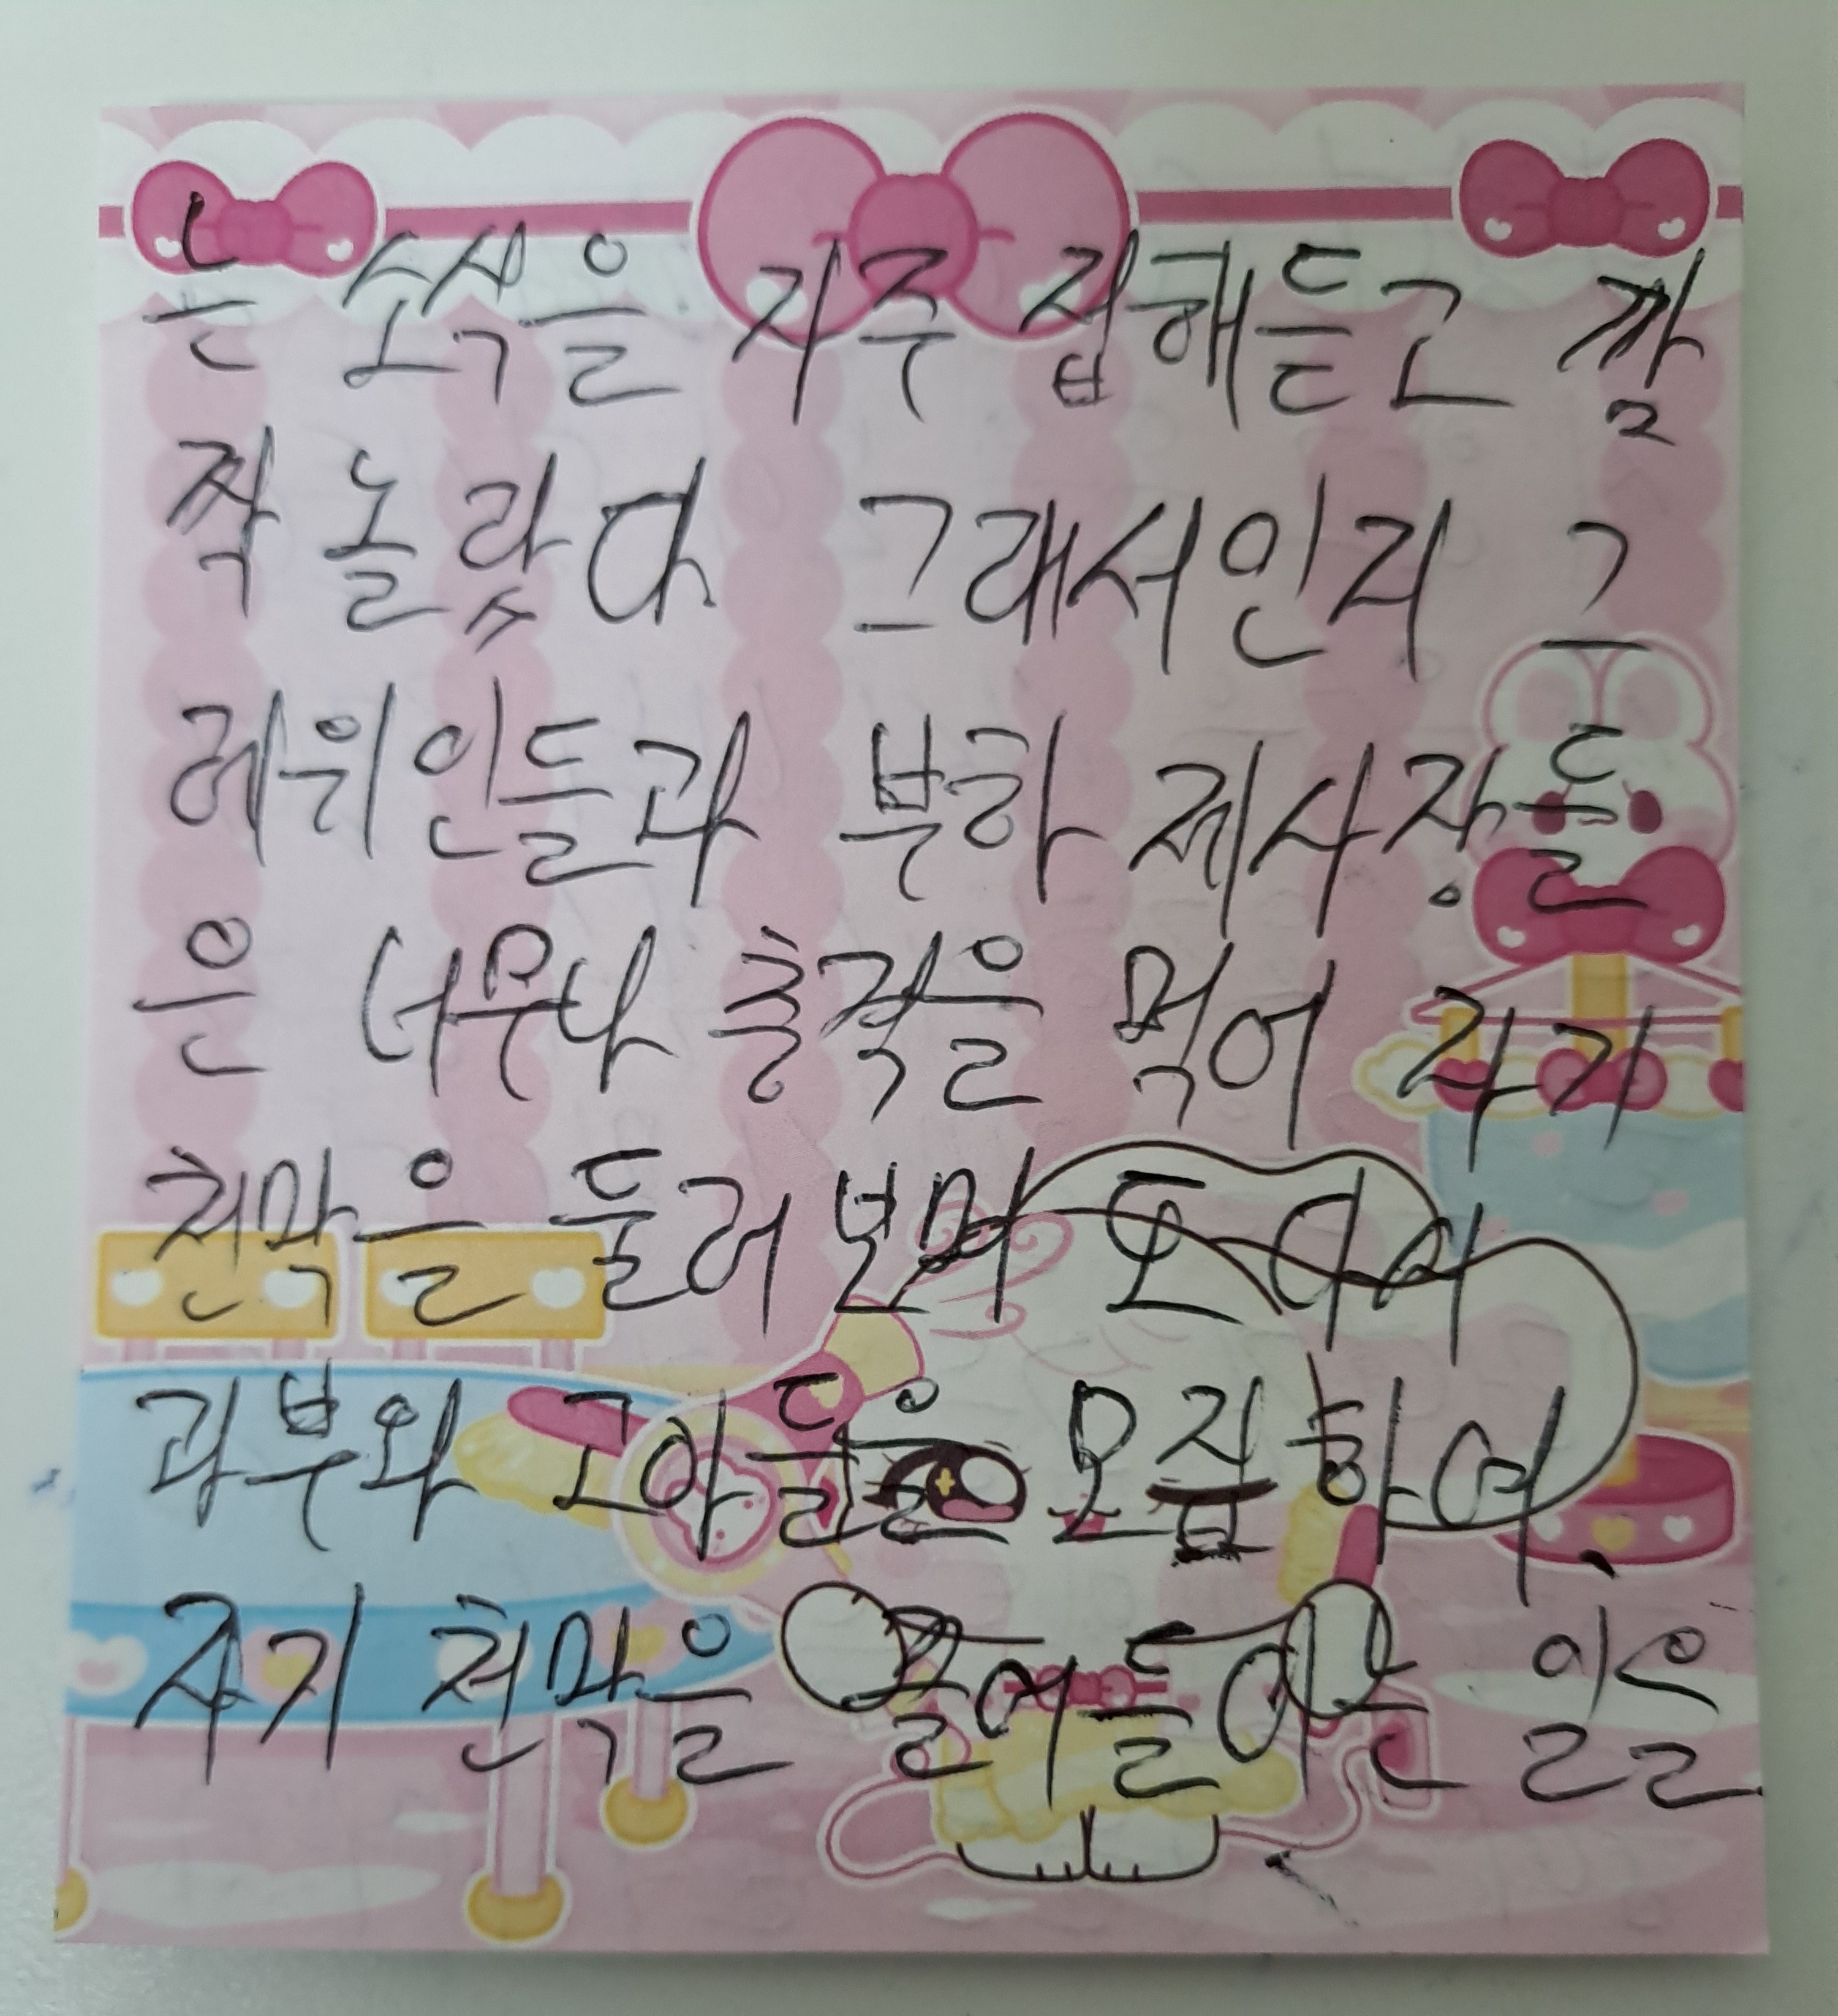 는 소식을 자주 접해듣고 깜
짝 놀랐다 그래서인지 그
레위인들과 부하 제사장들
은 너무나 충격을 먹어 각기
천막을 둘러보며 또 다시
과부와 고아들을 모집하여,
자기 천막을 끌어들이는 일을